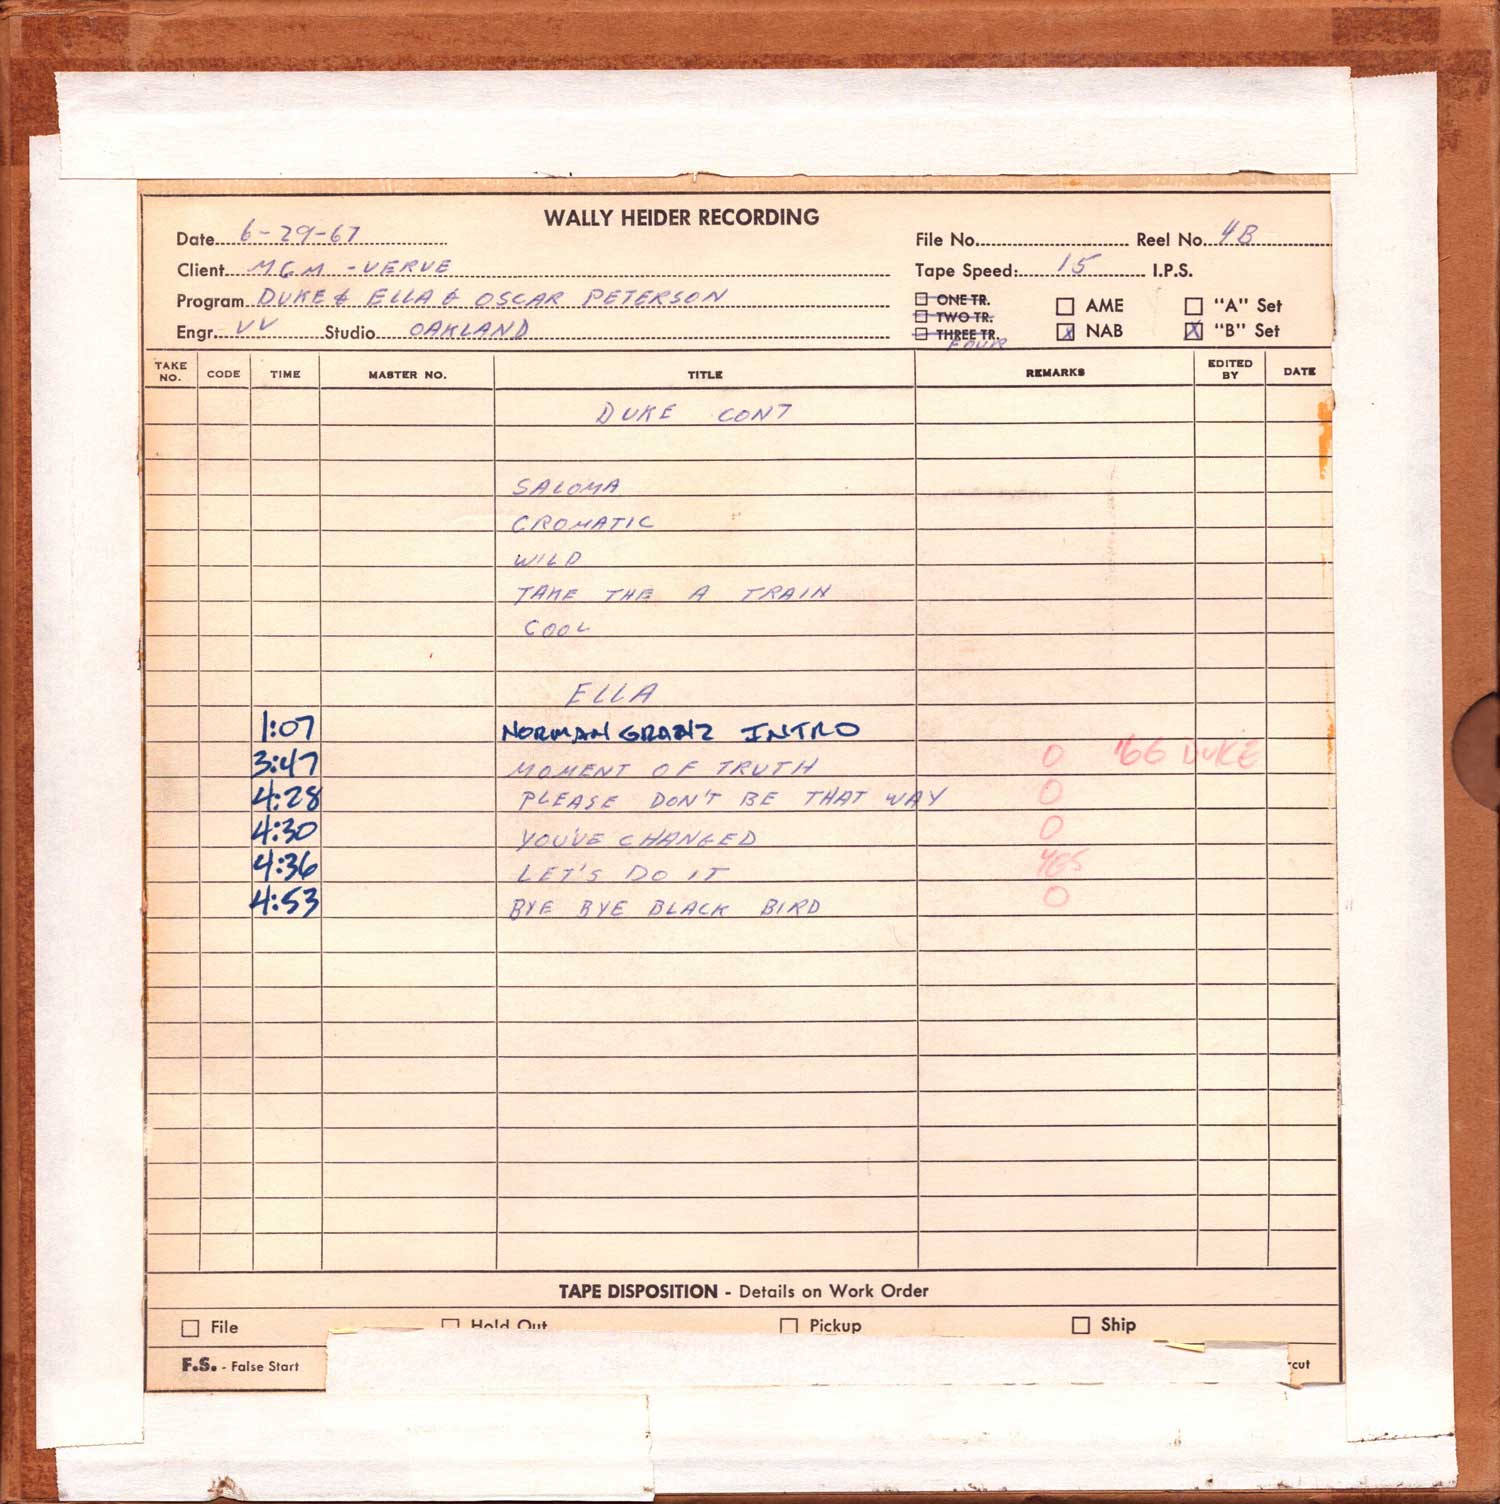 WALLY HEIDER RECORDING
Date 6-29-67
File No. Reel No. 4B
Client MGM - VERVE
Tape Speed: 15 I.P.S.
Program DUKE & ELLA & OSCAR PETERSON
ONE TR. AME "A" Set
TWO TR.
Engr. VV Studio OAKLAND
THREE TR. NAB "B" Set
FOUR
TAKE NO. CODE TIME MASTER NO. TITLE REMARKS EDITED BY DATE
DUKE CONT
SALOMA
CROMATIC
WILD
TAKE THE A TRAIN
COOL
ELLA
1:07 NORMAN GRANZ INTRO
3:47 MOMENT OF TRUTH O '66 DUKE
4:28 PLEASE DON'T BE THAT WAY O
4:30 YOU'VE CHANGED O
4:36 LET'S DO IT YES
4:53 BYE BYE BLACK BIRD O
TAPE DISPOSITION - Details on Work Order
File Hold Out Pickup Ship
F.S. - False Start rcut